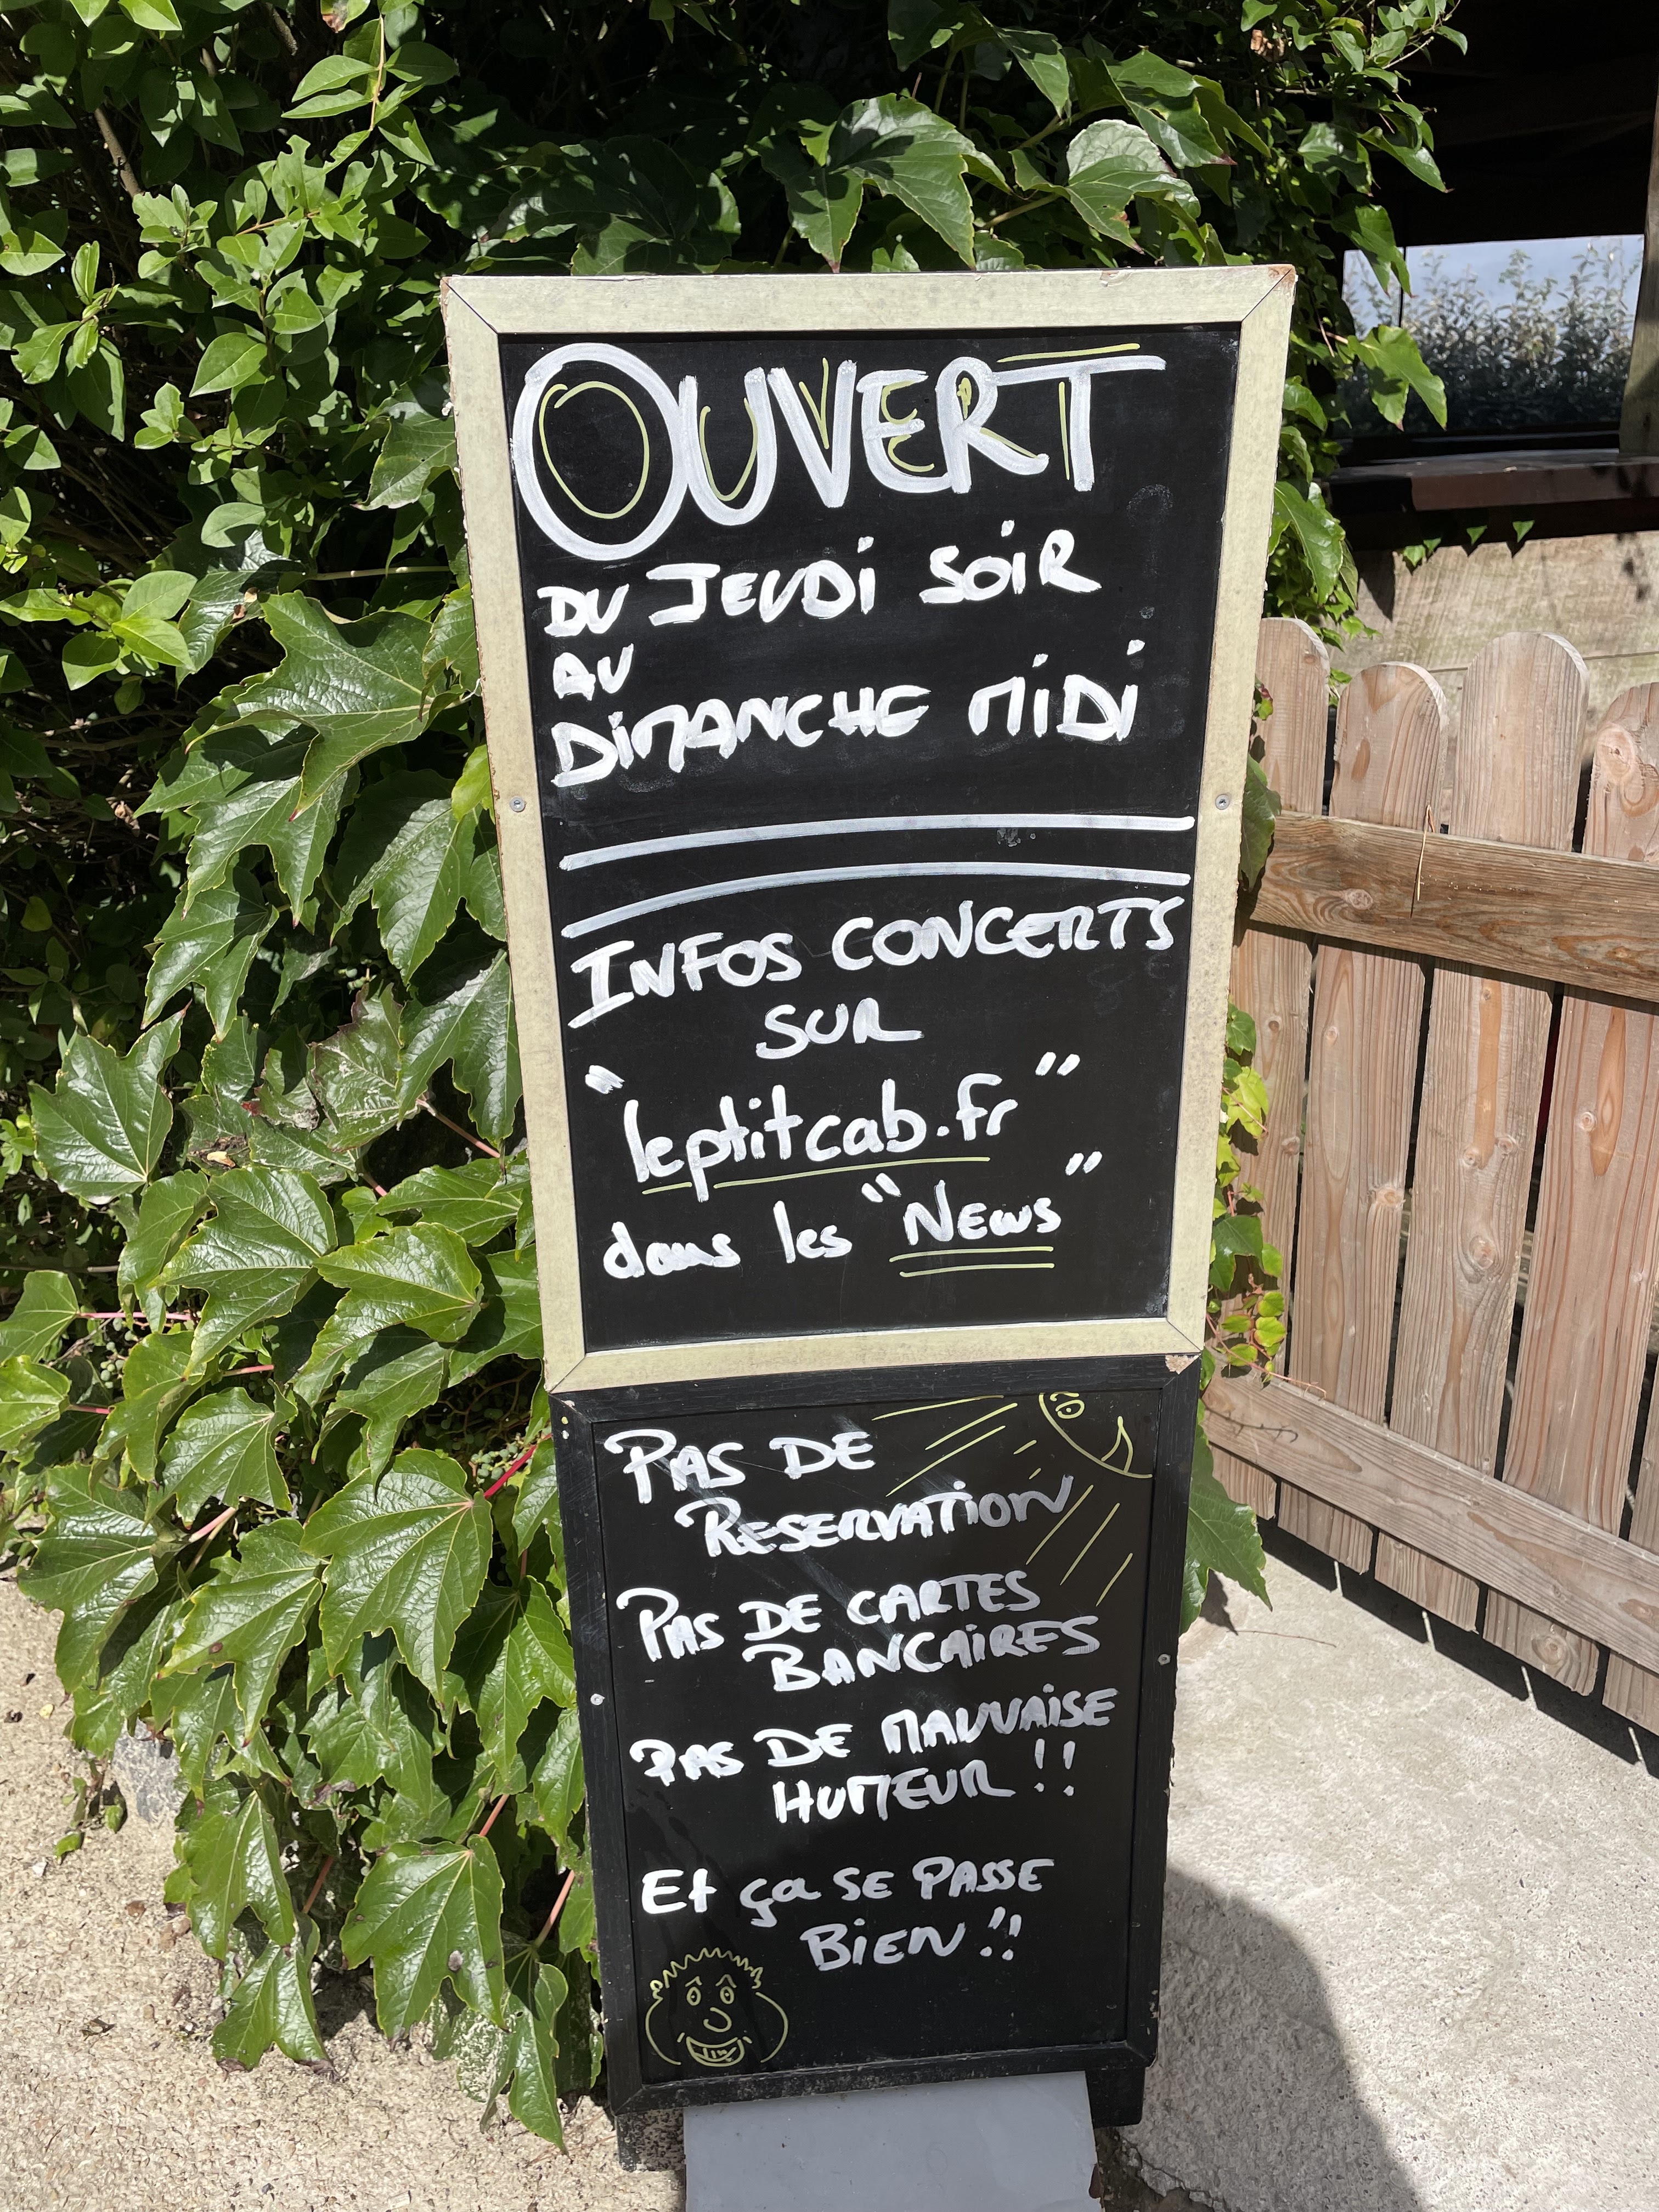 OUVERT
DU JEUDi SOiR
AU
DiMANCHE MiDi
INFOS CONCERTS
SUR
"leptitcab.fr"
dans les "News"
PAS DE
RESERVATiON
PAS DE CARTES
BANCAiRES
PAS DE MAUVAiSE
HUMEUR !!
Et ça SE PASSE
BiEN !!